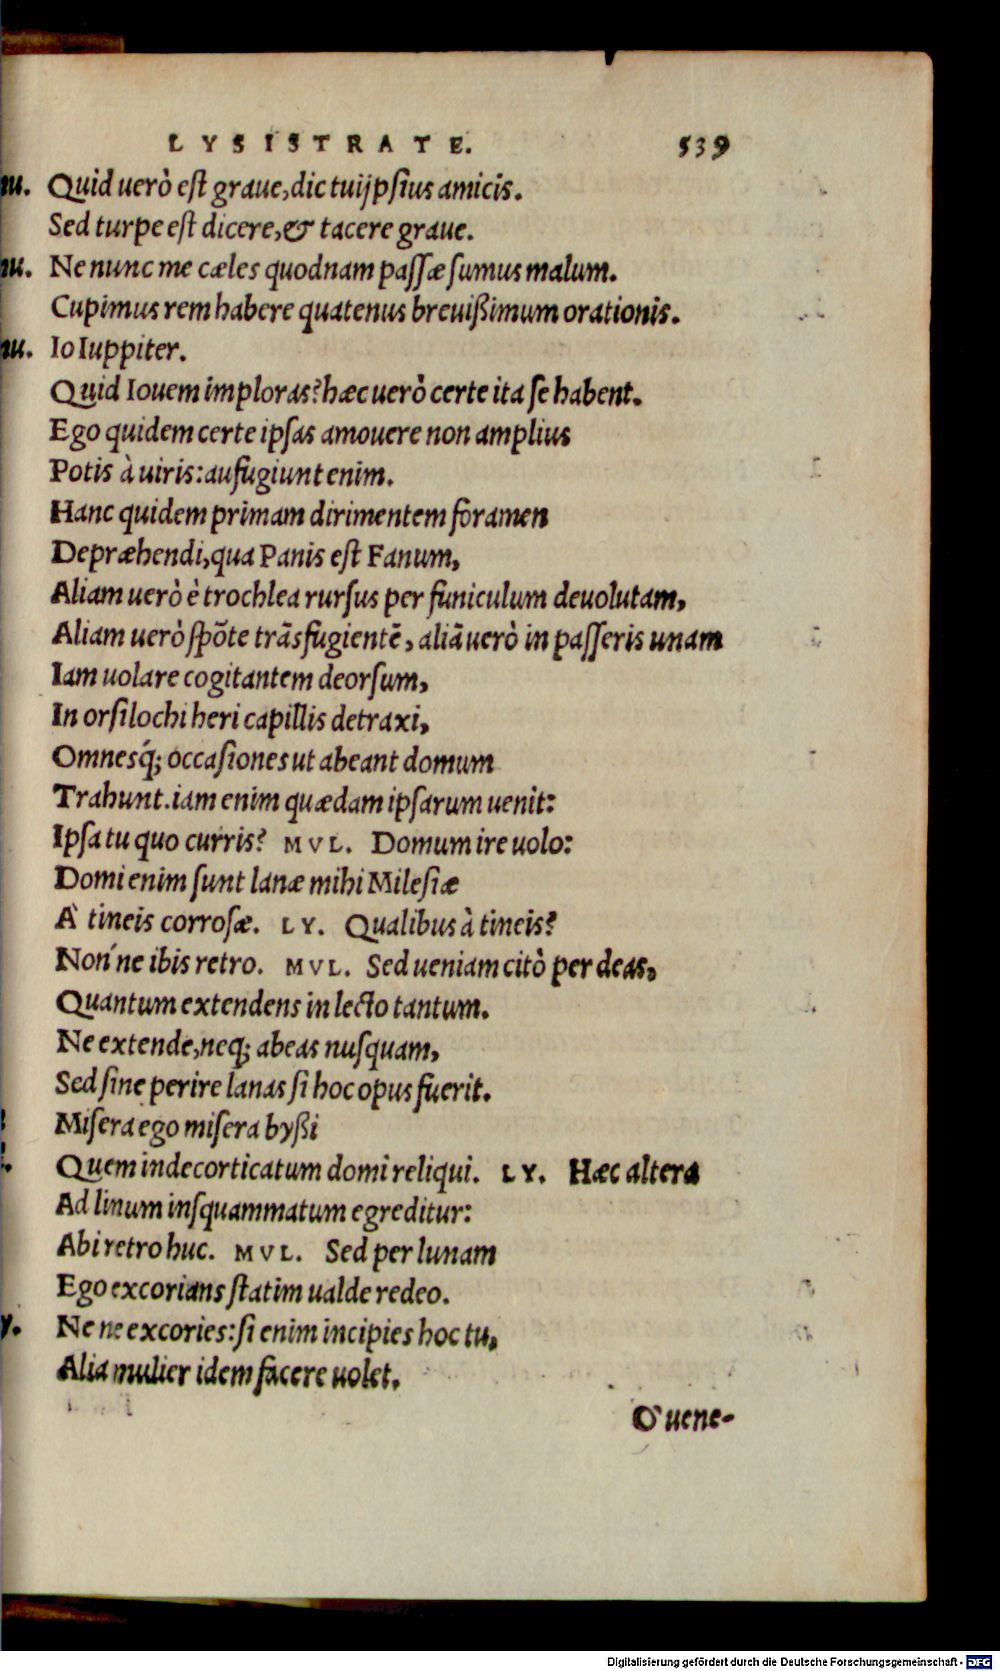 LYSISTRATE. 539
Quid uerò est graue, dic tuijpsius amicis.
Sed turpe est dicere, & tacere graue.
Ne nunc me cæles quodnam passæ sumus malum.
Cupimus rem habere quatenus breuißimum orationis.
Io Iuppiter.
Quid Iouem imploras? hæc uerò certe ita se habent.
Ego quidem certe ipsas amouere non amplius
Potis à uiris: aufugiunt enim.
Hanc quidem primam dirimentem foramen
Depræhendi, qua Panis est Fanum,
Aliam uerò è trochlea rursus per funiculum deuolutam,
Aliam uerò spõte trãsfugientẽ, aliã uerò in passeris unam
Iam uolare cogitantem deorsum,
In orsilochi heri capillis detraxi,
Omnesq́; occasiones ut abeant domum
Trahunt. iam enim quædam ipsarum uenit:
Ipsa tu quo curris? MVL. Domum ire uolo:
Domi enim sunt lanæ mihi Milesiæ
À tineis corrosæ. LY. Qualibus à tineis?
Non'ne ibis retro. MVL. Sed ueniam citò per deas,
Quantum extendens in lecto tantum.
Ne extende, neq; abeas nusquam,
Sed sine perire lanas si hoc opus fuerit.
Misera ego misera byßi
Quem indecorticatum domi reliqui. LY. Hæc altera
Ad linum insquammatum egreditur:
Abi retro huc. MVL. Sed per lunam
Ego excorians statim ualde redeo.
Ne ne excories: si enim incipies hoc tu,
Alia mulier idem facere uolet.
O' uene-
Digitalisierung gefördert durch die Deutsche Forschungsgemeinschaft - DFG